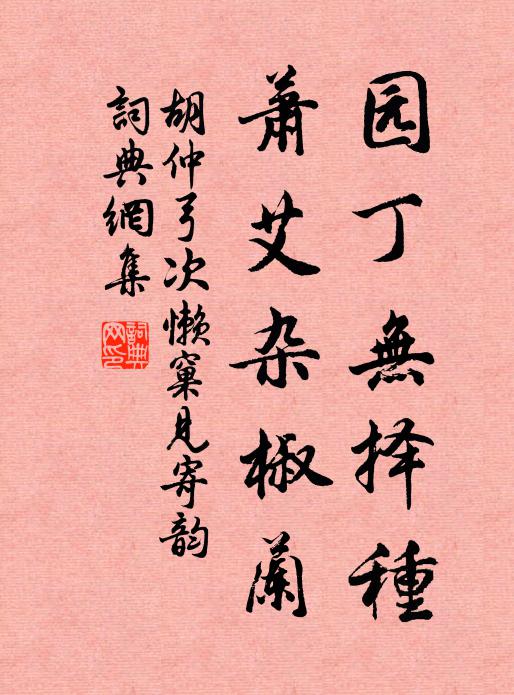 园丁無择種
萧艾杂椒蘭
胡仲弓次懒窠見寄韵
詞典網集
詞典网印